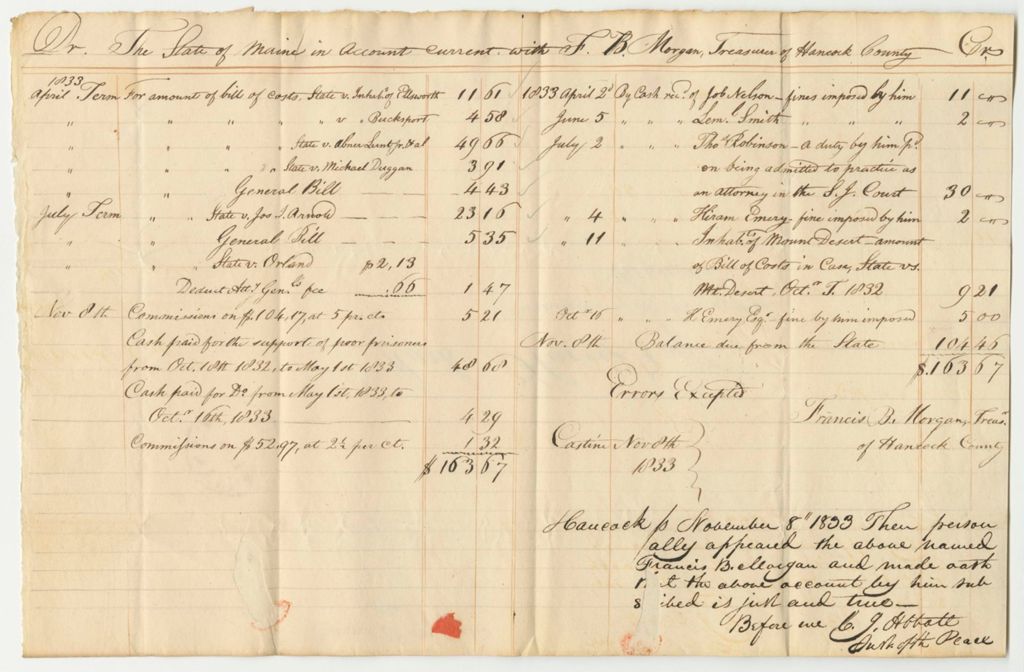 Dr. The State of Maine in Account Current with F. B. Morgan, Treasurer of Hancock County Cr.
1833
April Term For amount of bill of costs, State v. Inhab.ts of Ellsworth 11 61
" " " " v " Bucksport 4 58
" " State v. Abner Lunt jr. & al 49 66
" " " State v. Michael Duggan 3 91
" " General Bill 4 43
July Term " " State v. Jos. J. Arnold 23 16
" " General Bill 5 35
" " State v. Orland $2,13
Deduct Att.y Gen.ls fee .66 1 47
Nov 8th Commissions on $104,17, at 5 pr. ct. 5 21
Cash paid for the support of poor prisoners
from Oct. 18th 1832, to May 1st 1833 48 68
Cash paid for Do. from May 1st, 1833, to
Oct.r 16th, 1833 4 29
Commissions on $52.97, at 2½ per ct. 1 32
$163 67
1833 April 2d By Cash rec.d of Job Nelson - fines imposed by him 11 00
June 5 " " " Lem.l Smith " " " 2 00
July 2 " " " Tho.s Robinson - a duty by him p.d
on being admitted to practice as
an attorney in the S. J. Court 30 00
" 4 " " " Hiram Emery - fine imposed by him 2 00
" 11 Inhab.ts of Mount Desert - amount
of Bill of Costs in Case, State vs.
Mt. Desert, Oct.r T. 1832 9 21
Oct.r 16 " " " H. Emery Esq.r fine by him imposed 5 00
Nov. 8th Balance due from the State 104 46
$.163 67
Errors Excepted
Francis B. Morgan, Treas.r
of Hancock County
Castine Nov 8th
1833
Hancock ss November 8" 1833 Then person
ally appeared the above named
Francis B. Morgan and made oath
t the above account by him sub
s ibed is just and true—
Before me C. J. Abbott
Just of th Peace